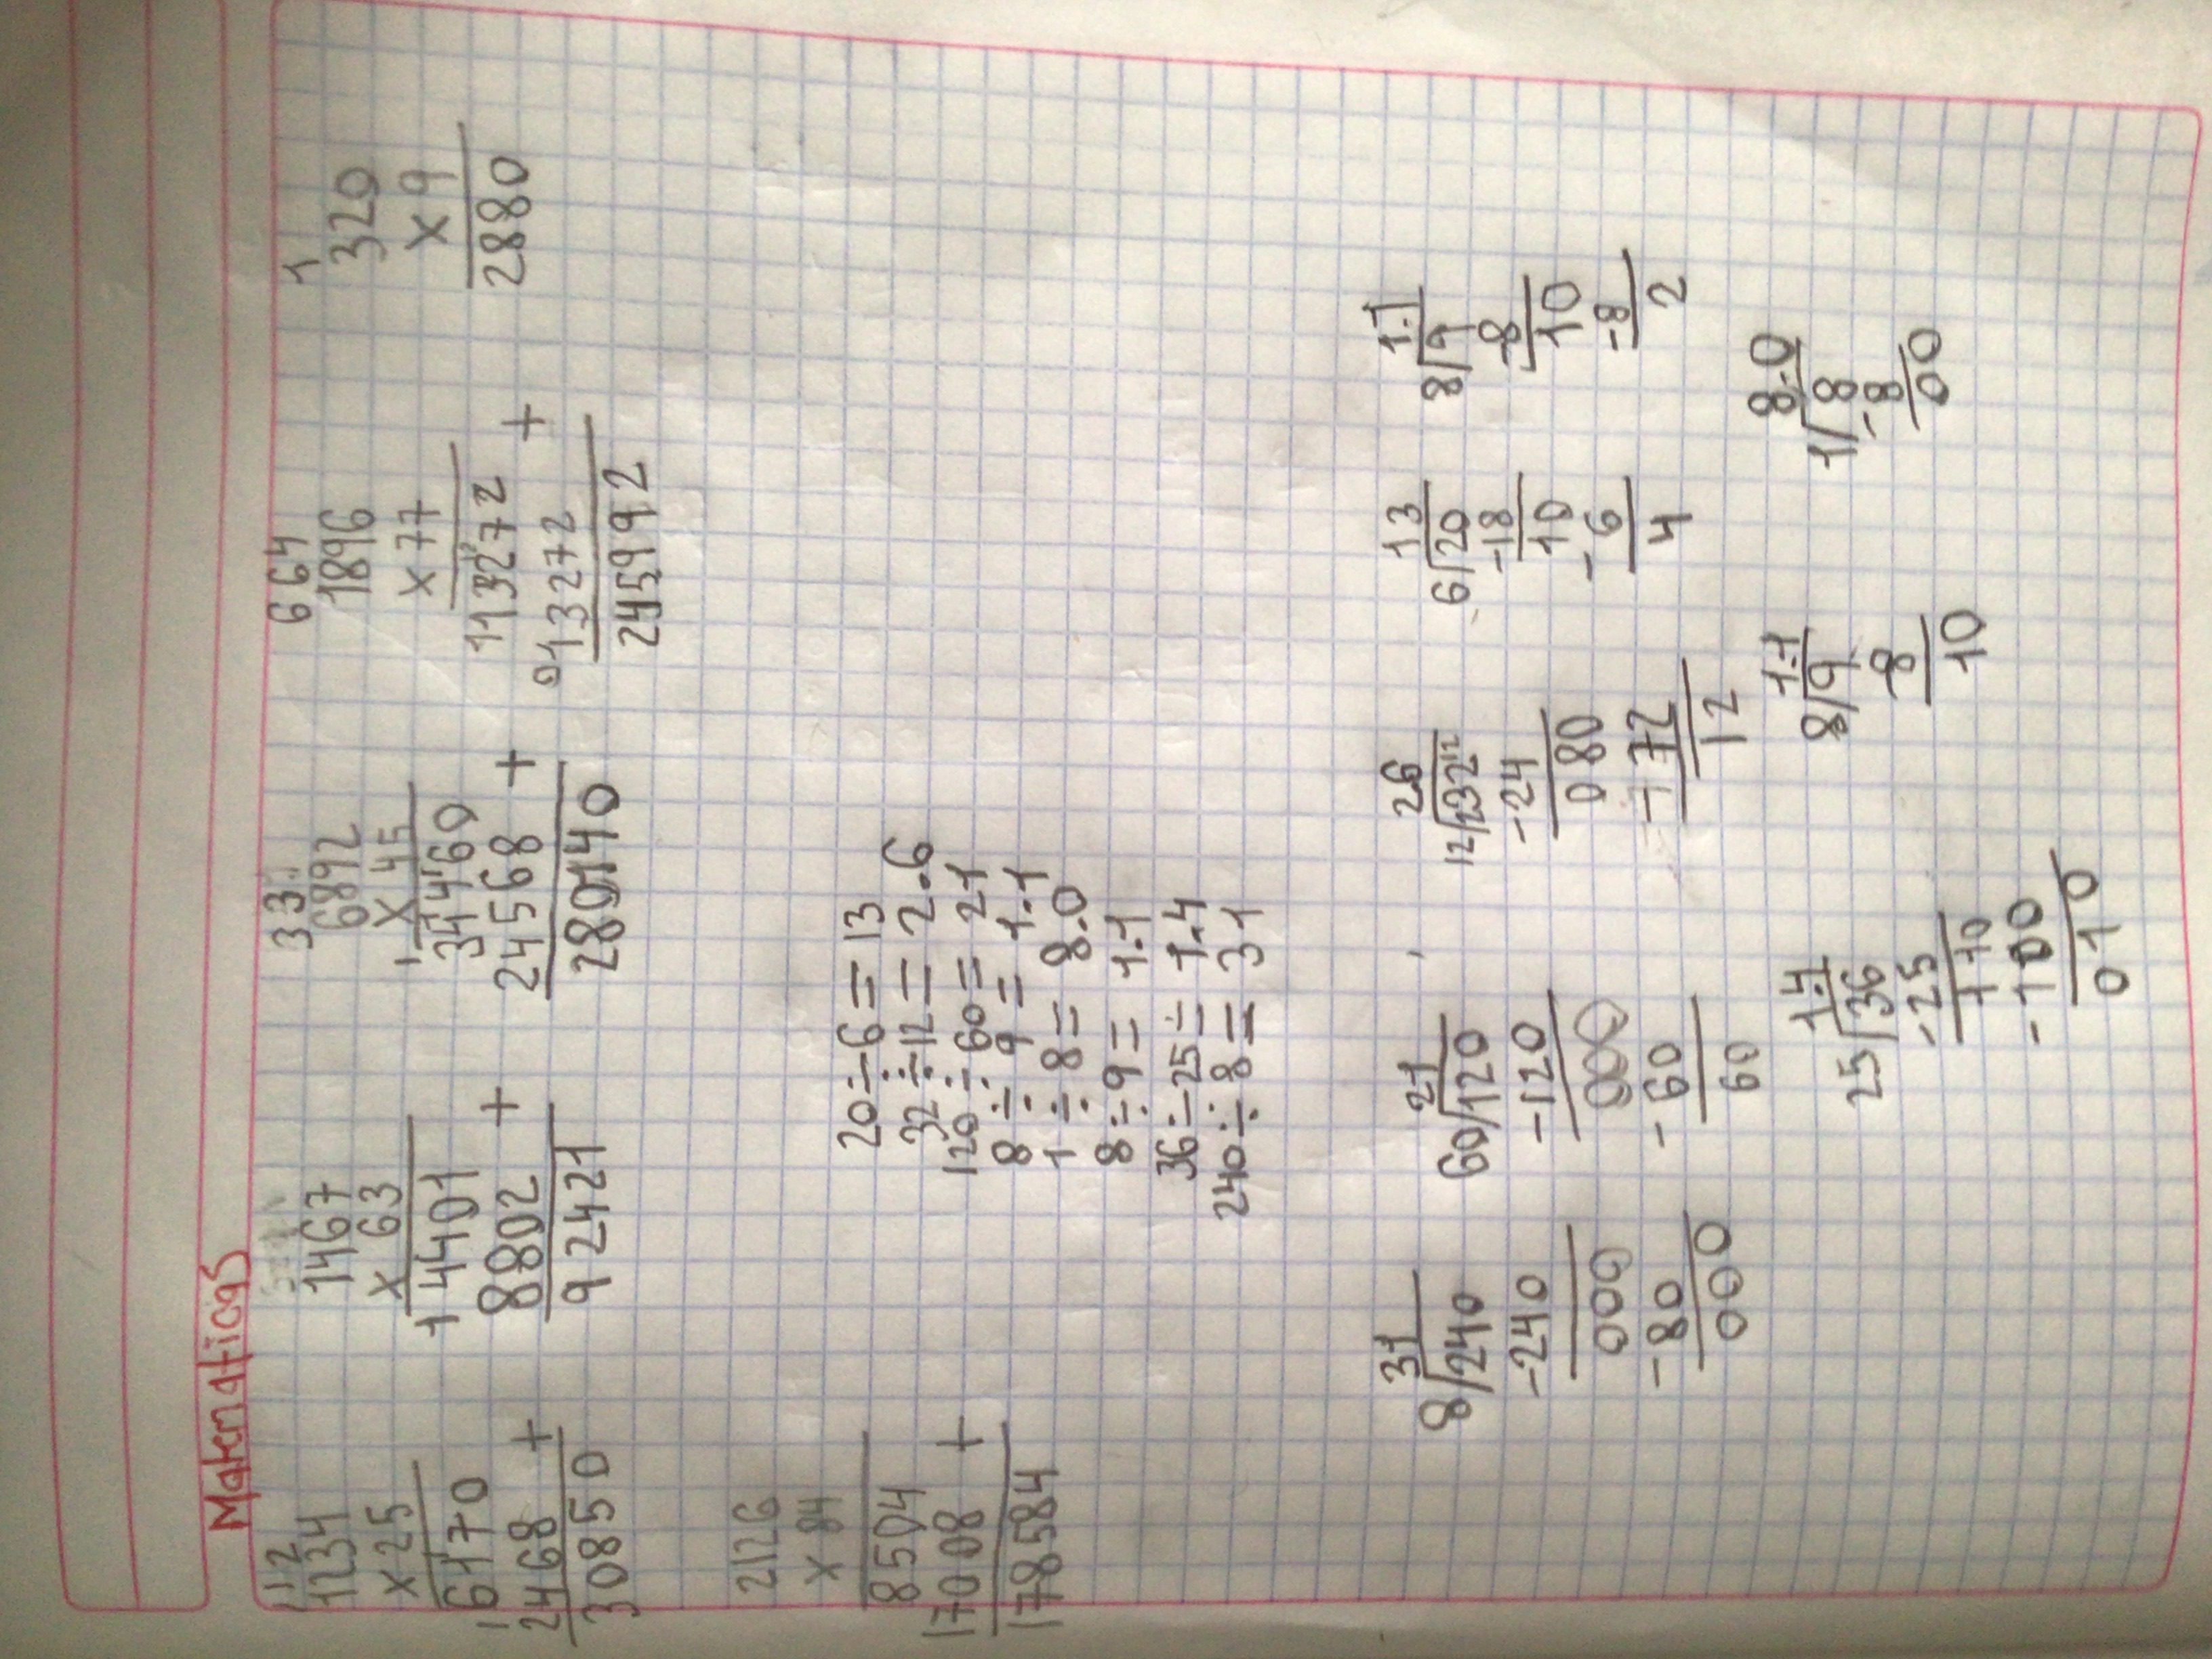 Matematicas
112
1234
x 25
6170
2468 +
30850
1467
x 63
4401
8802 +
92421
33
6892
x 45
34460
24568 +
280140
664
1896
x 77
113272
13272 +
245992
1
320
x 9
2880
2126
x 84
8504
17008 +
178584
20÷6=13
32÷12=2.6
120÷60=21
8÷9=1.1
1÷8=8.0
8÷9=1.1
36÷25=1.4
240÷8=31
31
8/240
-240
000
-80
000
21
60/120
-120
000
-60
60
2.6
12/232
-24
080
-72
12
13
6/20
-18
10
-6
4
1.1
8/9
-8
10
-8
2
1.4
25/36
-25
110
-100
010
1.1
8/9
-8
10
8.0
1/8
-8
00